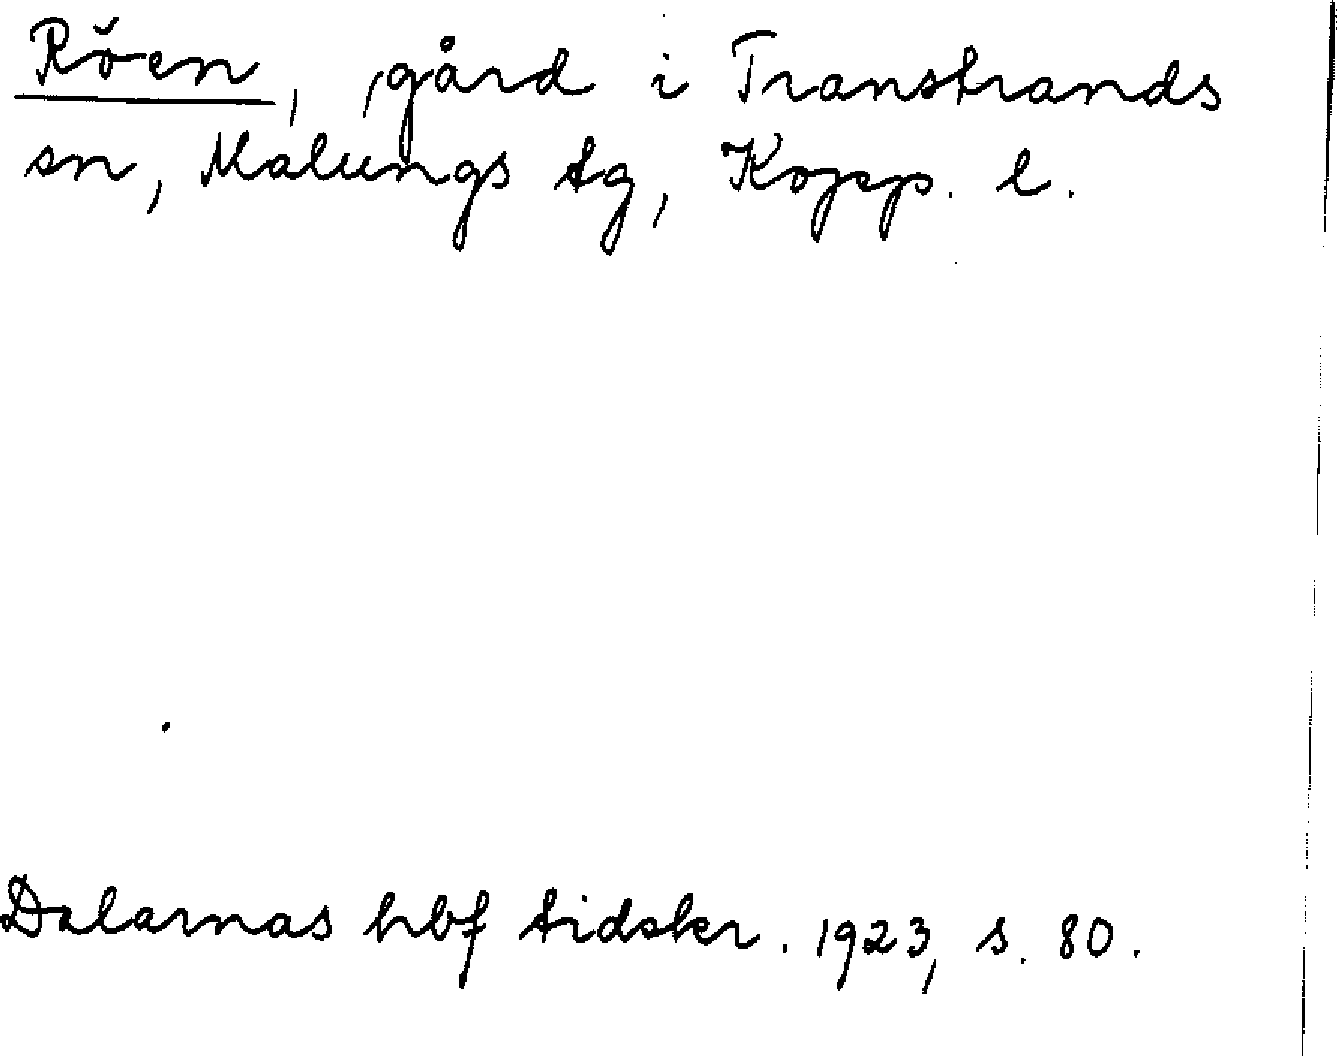 Röen, gård i Transtrands
sn, Malungs tg, Kopp. l.
Dalarnas hbf tidskr. 1923, s. 80.